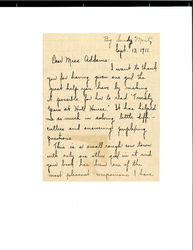 Big Sandy, Mont.
Sept. 13, 1911
Dear Miss Addams:
I want to thank
you for having given one girl the
great help you have by making
it possible for her to read "Twenty
Years at Hull House." It has helped
me so much in solving little diffi-
culties and answering perplexing
questions.
This is a small rough cow town
with only one other girl in it and
your book has been one of the
most pleasant companions I have